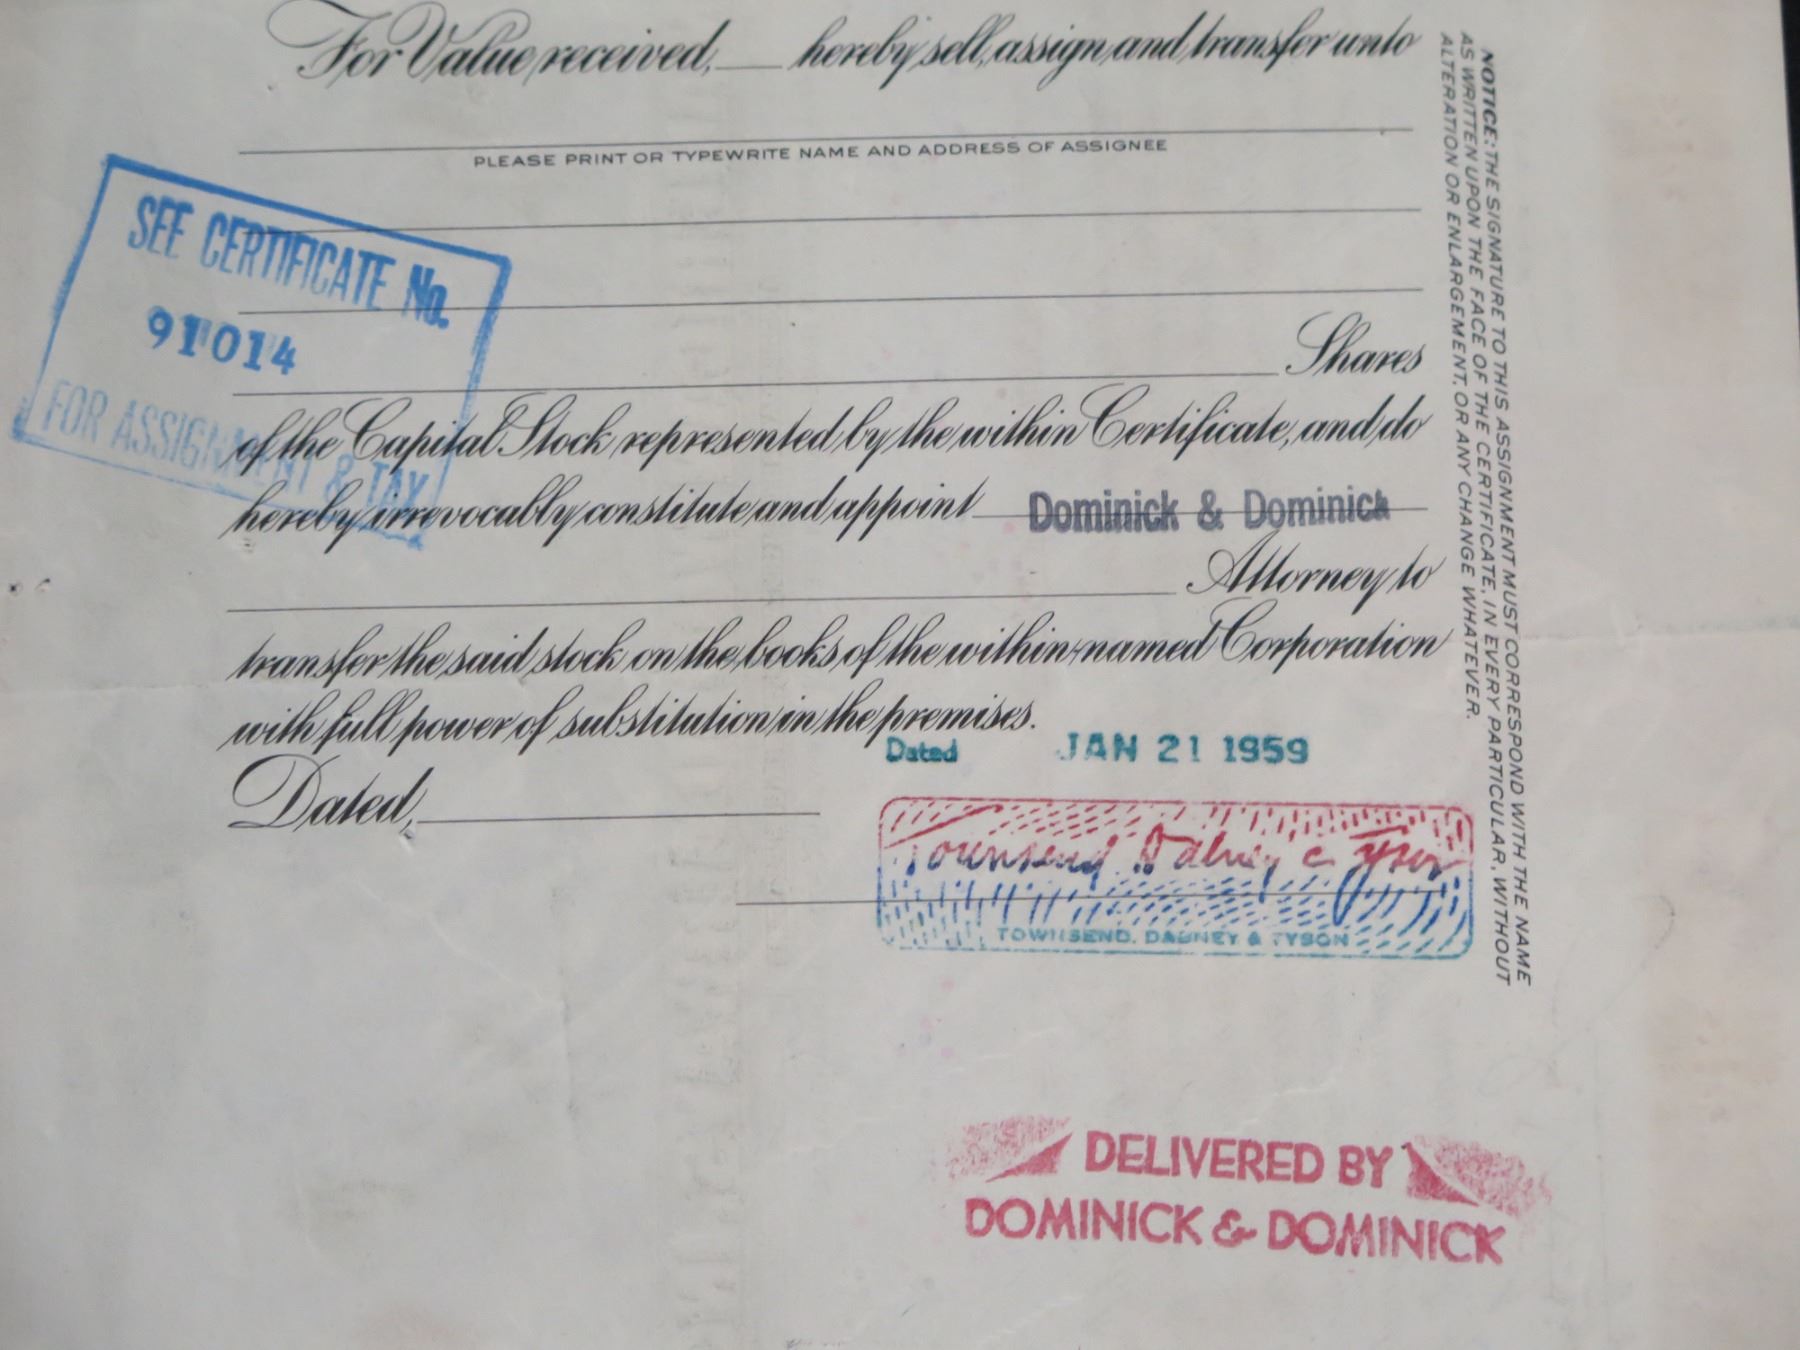 For Value received, ___ hereby sell, assign and transfer unto
PLEASE PRINT OR TYPEWRITE NAME AND ADDRESS OF ASSIGNEE
SEE CERTIFICATE No.
91014
FOR ASSIGNMENT & TAX
Shares
of the Capital Stock represented by the within Certificate, and do
hereby irrevocably constitute and appoint Dominick & Dominick
Attorney to
transfer the said stock on the books of the within-named Corporation
with full power of substitution in the premises.
Dated JAN 21 1959
Dated,
Townsend Dabney & Tyson
TOWNSEND, DABNEY & TYSON
DELIVERED BY
DOMINICK & DOMINICK
NOTICE: THE SIGNATURE TO THIS ASSIGNMENT MUST CORRESPOND WITH THE NAME
AS WRITTEN UPON THE FACE OF THE CERTIFICATE, IN EVERY PARTICULAR, WITHOUT
ALTERATION OR ENLARGEMENT, OR ANY CHANGE WHATEVER.